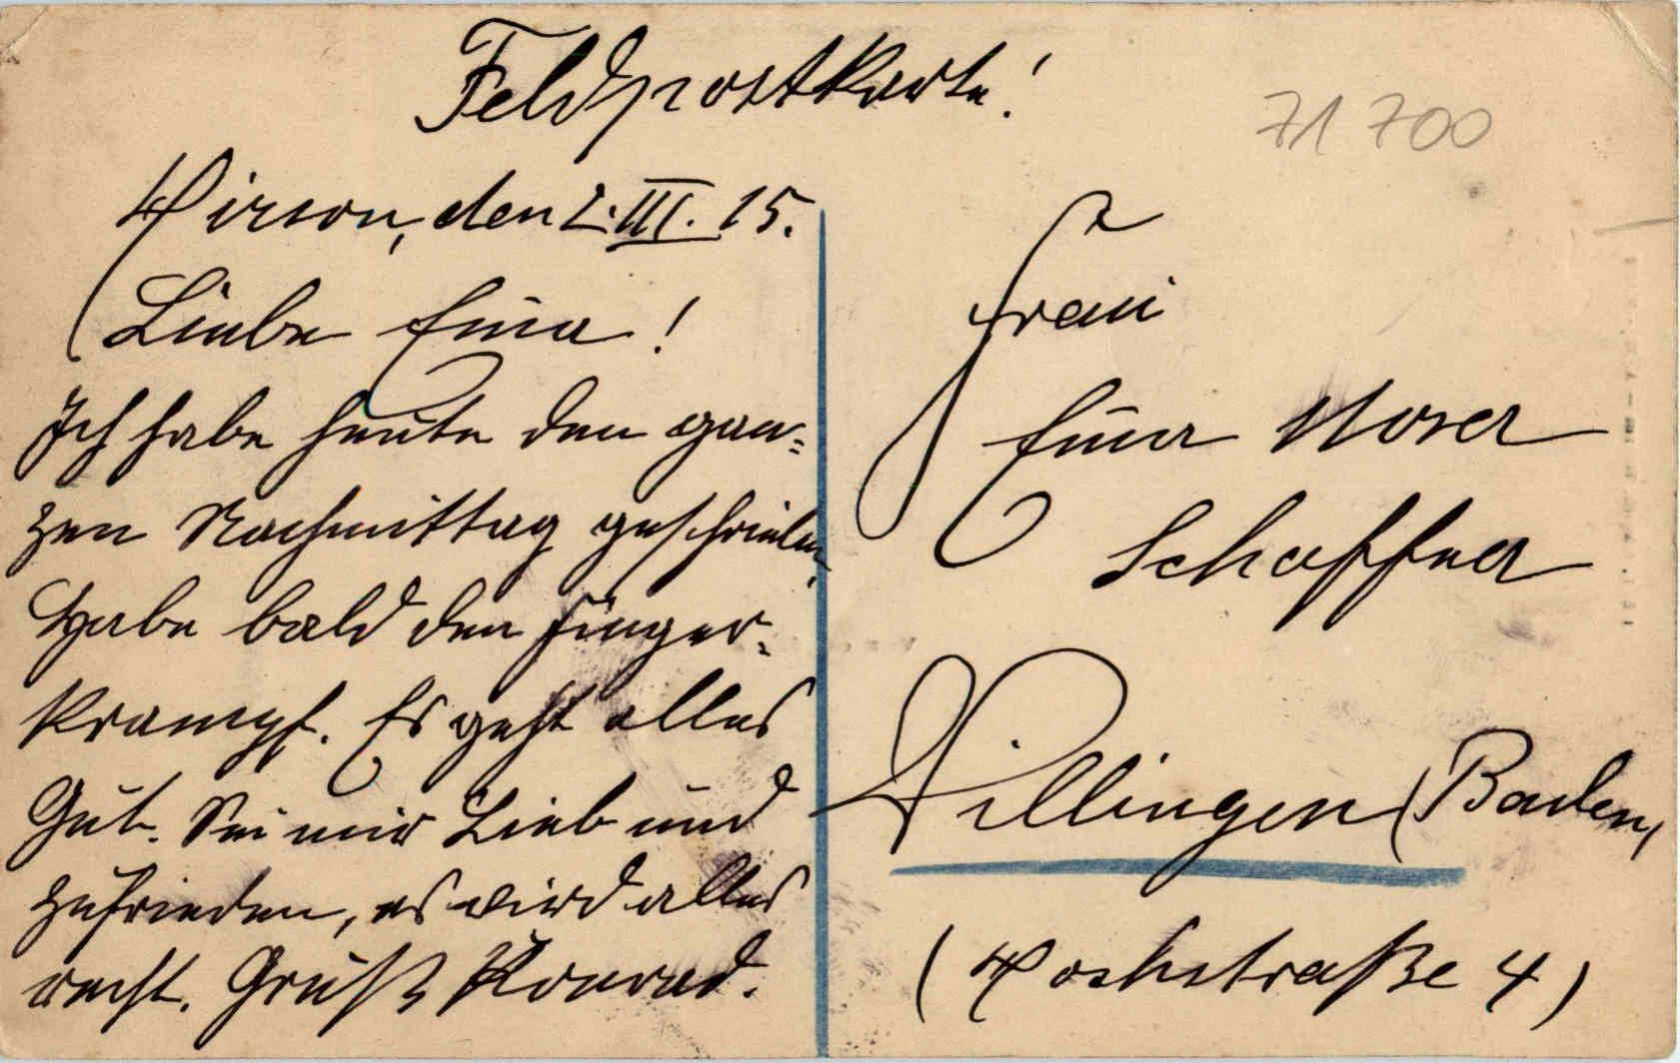 Feldpostkarte!
71 700
Hirson, den 2. III. 15.
Liebe Emma!
Ich habe heute den gan-
zen Nachmittag geschrieben,
Habe bald den Finger-
krampf. Es geht alles
Gut. Sei mir Lieb und
zufrieden, es wird alles
recht. Gruß Konrad.
Frau
Emma Moser
Schaffner
Villingen (Baden,
(Hochstraße 4)